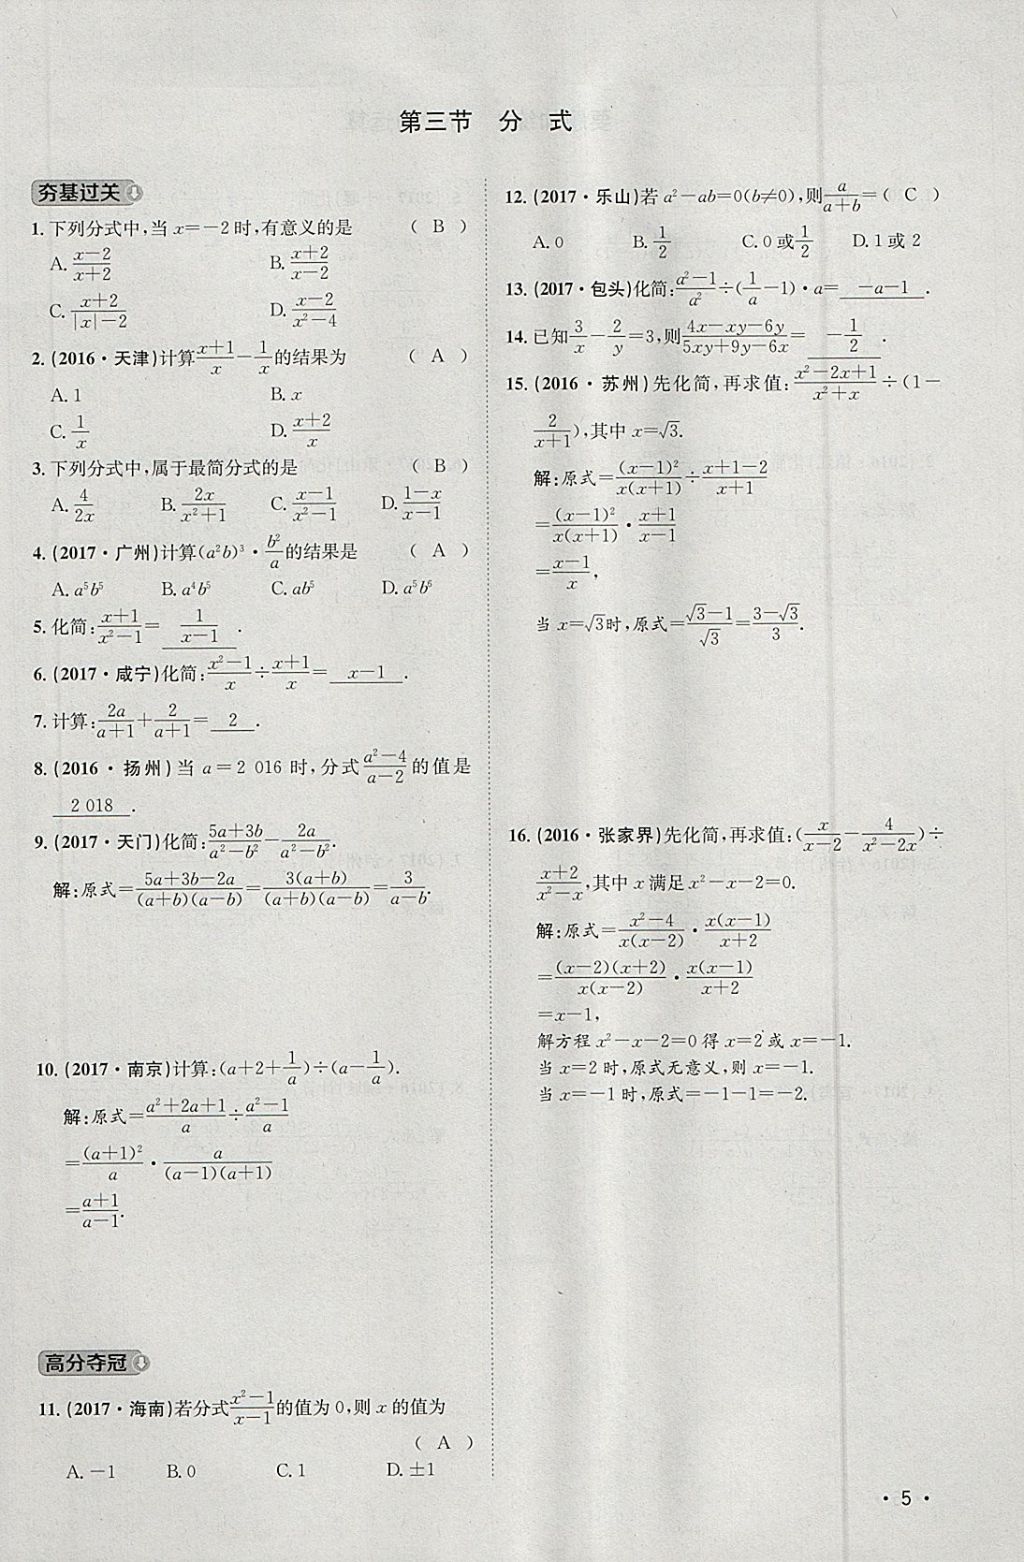 第三节 分 式
夯基过关
1. 下列分式中,当 x=-2时,有意义的是 ( B )
A. \frac{x-2}{x+2} B. \frac{x+2}{x-2}
C. \frac{x+2}{|x|-2} D. \frac{x-2}{x²-4}
2. (2016·天津)计算\frac{x+1}{x}-\frac{1}{x}的结果为 ( A )
A. 1 B. x
C. \frac{1}{x} D. \frac{x+2}{x}
3. 下列分式中,属于最简分式的是 ( B )
A. \frac{4}{2x} B. \frac{2x}{x²+1} C. \frac{x-1}{x²-1} D. \frac{1-x}{x-1}
4. (2017·广州)计算(a²b)³·\frac{b²}{a}的结果是 ( A )
A. a⁵b⁵ B. a⁴b⁵ C. ab⁵ D. a⁵b⁶
5. 化简:\frac{x+1}{x²-1}= \frac{1}{x-1} .
6. (2017·咸宁)化简:\frac{x²-1}{x}÷\frac{x+1}{x}= x-1 .
7. 计算:\frac{2a}{a+1}+\frac{2}{a+1}= 2 .
8. (2016·扬州)当 a=2 016 时,分式\frac{a²-4}{a-2}的值是
2 018 .
9. (2017·天门)化简:\frac{5a+3b}{a²-b²}-\frac{2a}{a²-b²}.
解:原式=\frac{5a+3b-2a}{(a+b)(a-b)}=\frac{3(a+b)}{(a+b)(a-b)}=\frac{3}{a-b}.
10. (2017·南京)计算:(a+2+\frac{1}{a})÷(a-\frac{1}{a}).
解:原式=\frac{a²+2a+1}{a}÷\frac{a²-1}{a}
=\frac{(a+1)²}{a}·\frac{a}{(a-1)(a+1)}
=\frac{a+1}{a-1}.
高分夺冠
11. (2017·海南)若分式\frac{x²-1}{x-1}的值为 0,则 x 的值为
( A )
A. -1 B. 0 C. 1 D. ±1
12. (2017·乐山)若 a²-ab=0(b≠0),则\frac{a}{a+b}=( C )
A. 0 B. \frac{1}{2} C. 0 或\frac{1}{2} D. 1 或 2
13. (2017·包头)化简:\frac{a²-1}{a²}÷(\frac{1}{a}-1)·a= -a-1 .
14. 已知\frac{3}{x}-\frac{2}{y}=3,则\frac{4x-xy-6y}{5xy+9y-6x}= -\frac{1}{2} .
15. (2016·苏州)先化简,再求值:\frac{x²-2x+1}{x²+x}÷(1-
\frac{2}{x+1}),其中 x=√3.
解:原式=\frac{(x-1)²}{x(x+1)}÷\frac{x+1-2}{x+1}
=\frac{(x-1)²}{x(x+1)}·\frac{x+1}{x-1}
=\frac{x-1}{x},
当 x=√3时,原式=\frac{√3-1}{√3}=\frac{3-√3}{3}.
16. (2016·张家界)先化简,再求值:(\frac{x}{x-2}-\frac{4}{x²-2x})÷
\frac{x+2}{x²-x},其中 x 满足 x²-x-2=0.
解:原式=\frac{x²-4}{x(x-2)}·\frac{x(x-1)}{x+2}
=\frac{(x-2)(x+2)}{x(x-2)}·\frac{x(x-1)}{x+2}
=x-1,
解方程 x²-x-2=0 得 x=2 或 x=-1.
当 x=2 时,原式无意义,则 x=-1.
当 x=-1 时,原式=-1-1=-2.
· 5 ·